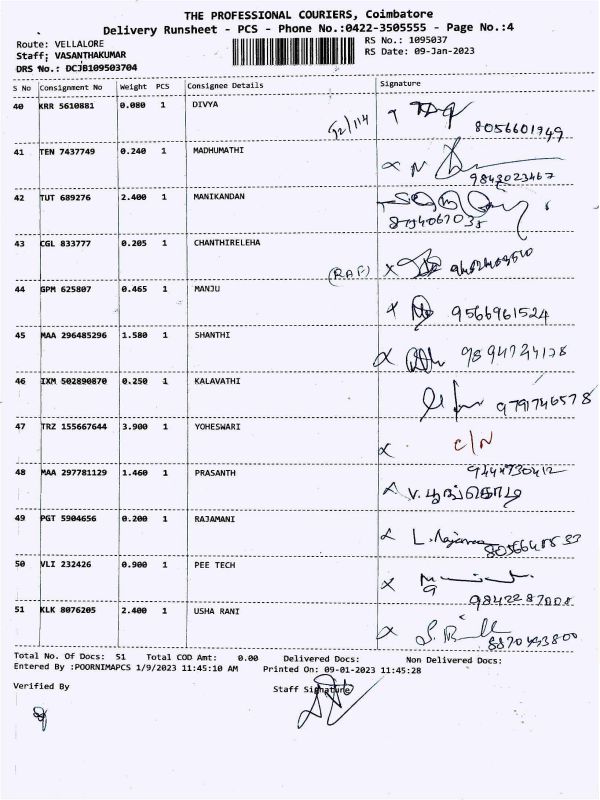 THE PROFESSIONAL COURIERS, Coimbatore
Delivery Runsheet - PCS - Phone No.:0422-3505555 - Page No.:4
Route: VELLALORE RS No.: 1095037
Staff: VASANTHAKUMAR RS Date: 09-Jan-2023
DRS No.: DCJB109503704
S No Consignment No Weight PCS Consignee Details Signature
40 KRR 5610881 0.080 1 DIVYA
8056601749
41 TEN 7437749 0.240 1 MADHUMATHI
9843023467
42 TUT 689276 2.400 1 MANIKANDAN
43 CGL 833777 0.205 1 CHANTHIRELEHA
44 GPM 625807 0.465 1 MANJU
9566961524
45 MAA 296485296 1.580 1 SHANTHI
46 IXM 502890870 0.250 1 KALAVATHI
9791746578
47 TRZ 155667644 3.900 1 YOHESWARI
C/N
48 MAA 297781129 1.460 1 PRASANTH
9444730412
V. பூங்கொடி
49 PGT 5904656 0.200 1 RAJAMANI
50 VLI 232426 0.900 1 PEE TECH
51 KLK 8076205 2.400 1 USHA RANI
Total No. Of Docs: 51 Total COD Amt: 0.00 Delivered Docs: Non Delivered Docs:
Entered By :POORNIMAPCS 1/9/2023 11:45:10 AM Printed On: 09-01-2023 11:45:28
Verified By Staff Signature